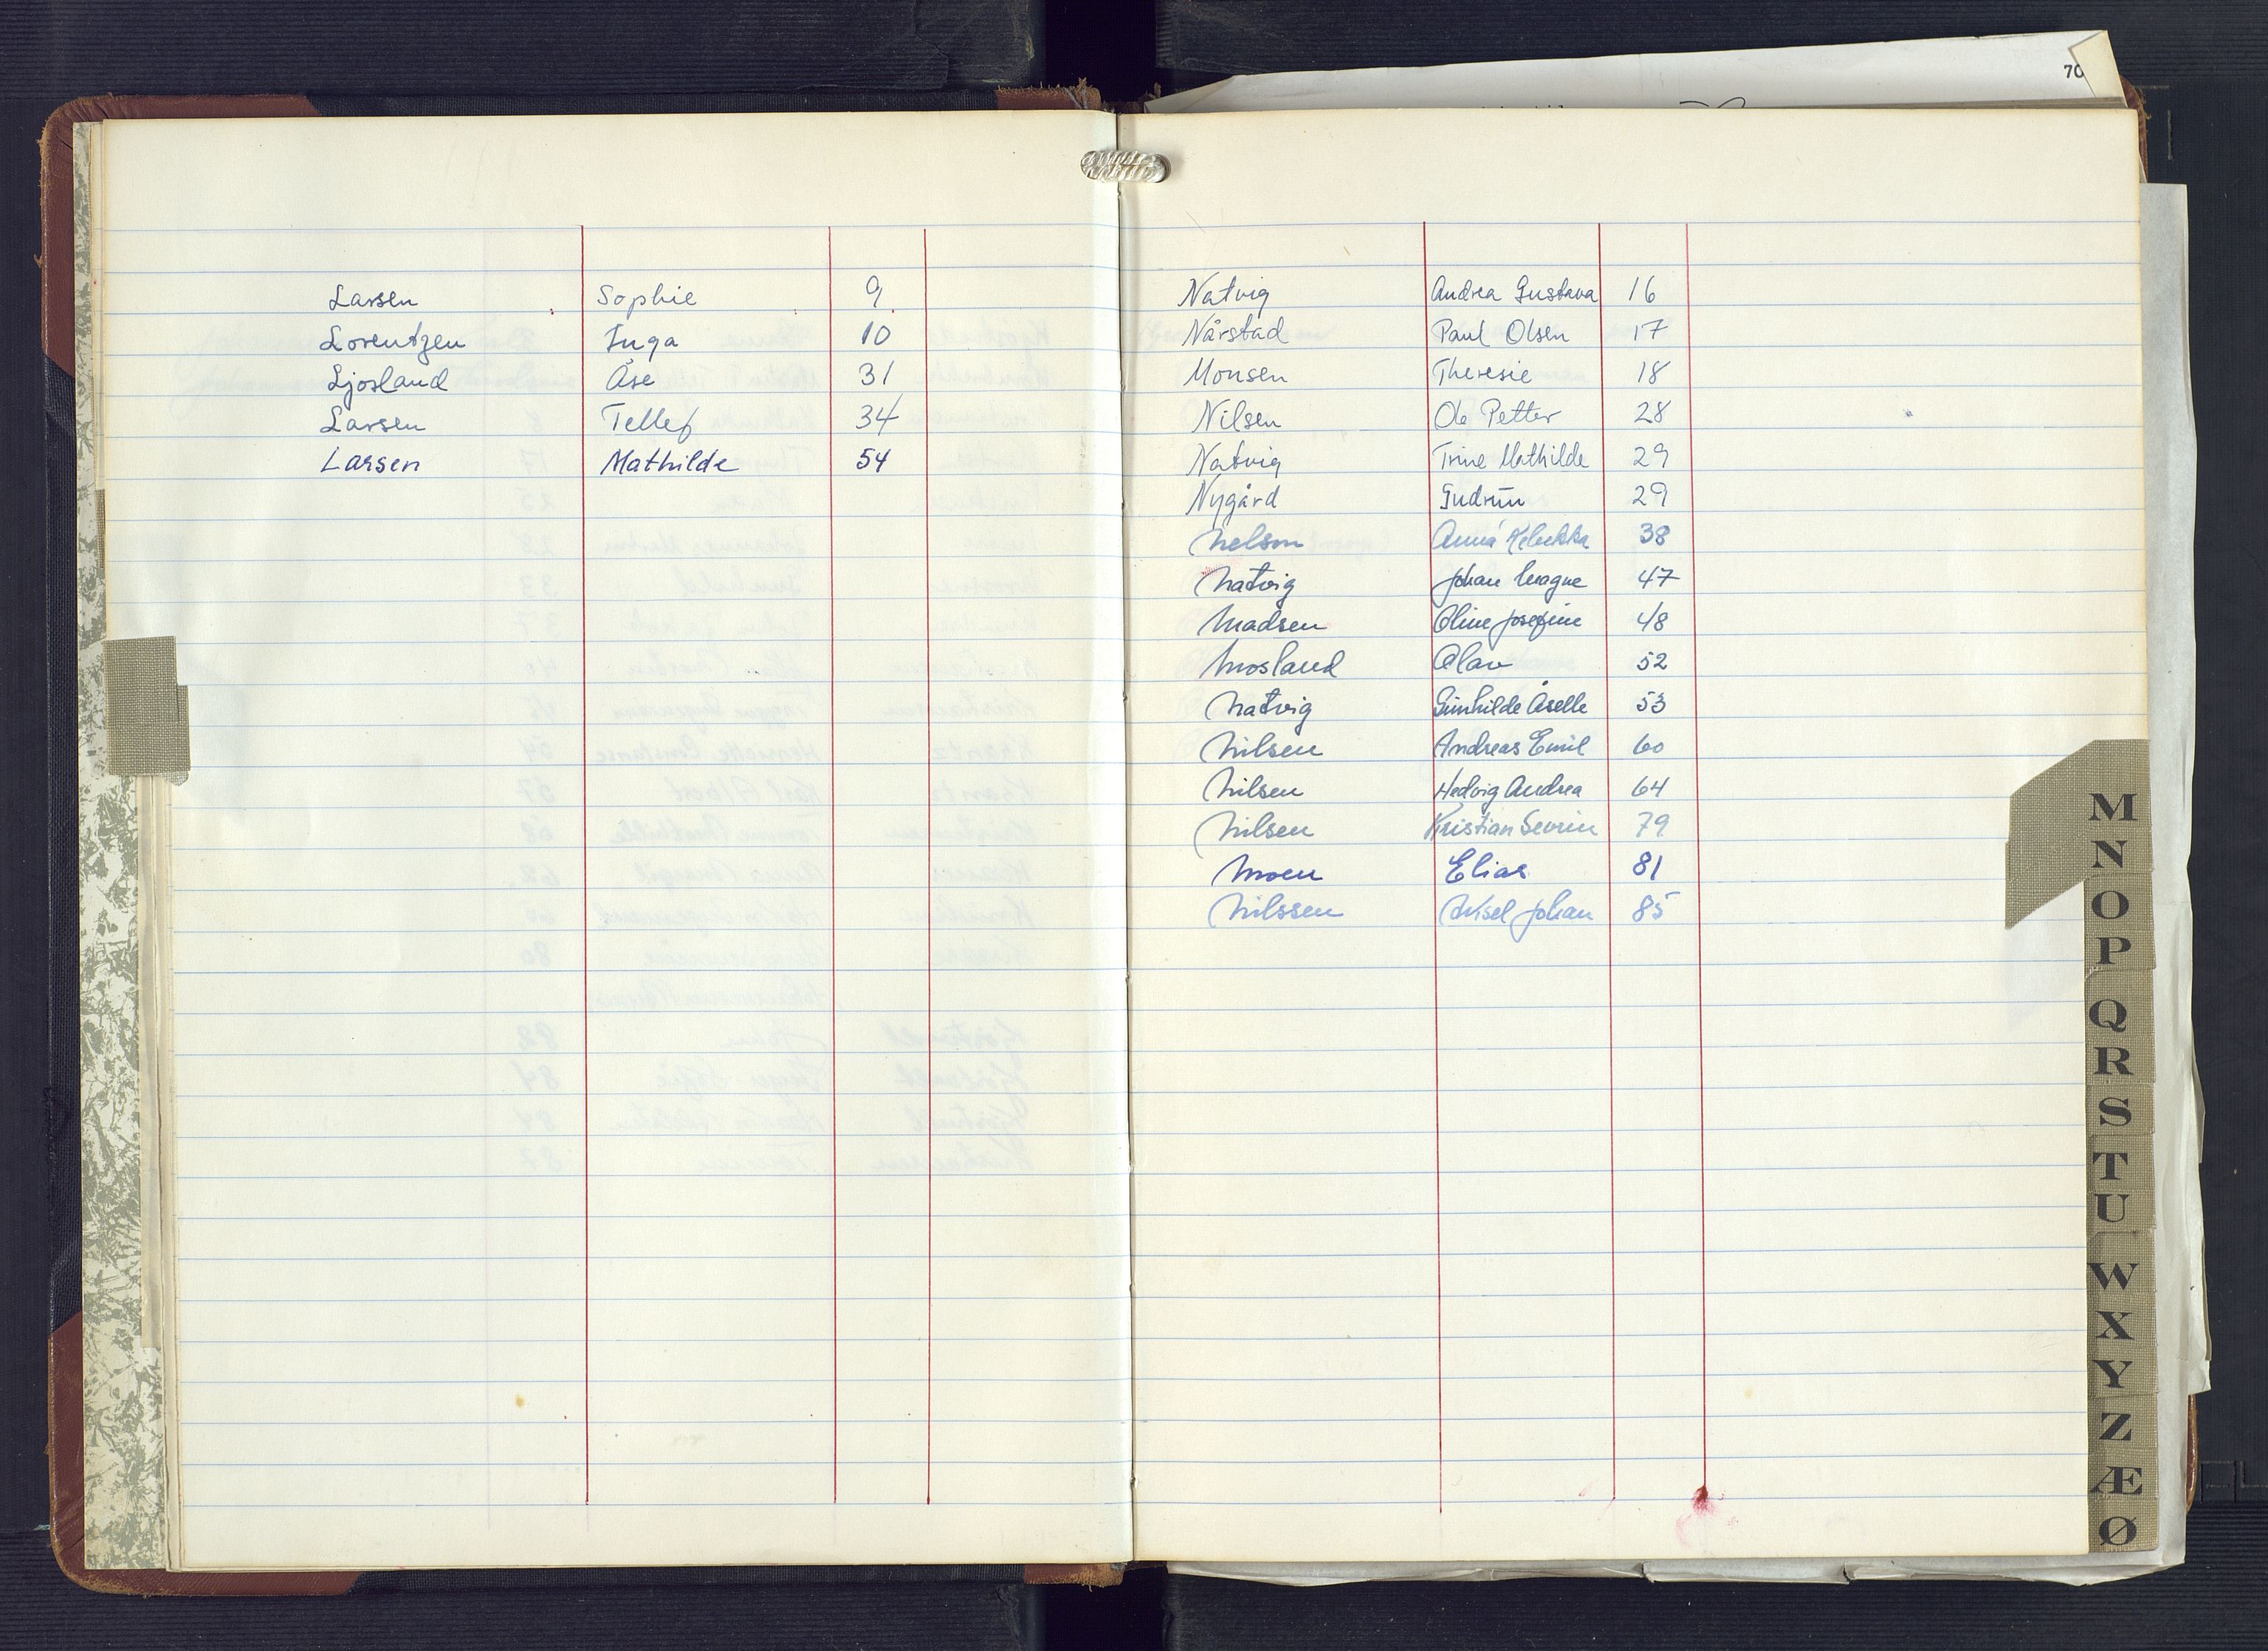 70
Larsen Sophie 9
Lorentzen Inga 10
Ljosland Åse 31
Larsen Tellef 34
Larsen Mathilde 54
Natvig Andrea Gustava 16
Nårstad Paul Olsen 17
Monsen Theresie 18
Nilsen Ole Petter 28
Natvig Trine Mathilde 29
Nygård Gudrun 29
Nelson Anna 38
Natvig Johan Magne 47
Madsen Oline Josefine 48
Mosland Olav 52
Natvig Gunhilde Åselle 53
Nilsen Andreas Emil 60
Nilsen Hedvig Andrea 64
Nilsen Kristian Severin 79
Moen Elias 81
Nilssen Aksel Johan 85
M
N
O
P
Q
R
S
T
U
W
X
Y
Z
Æ
Ø